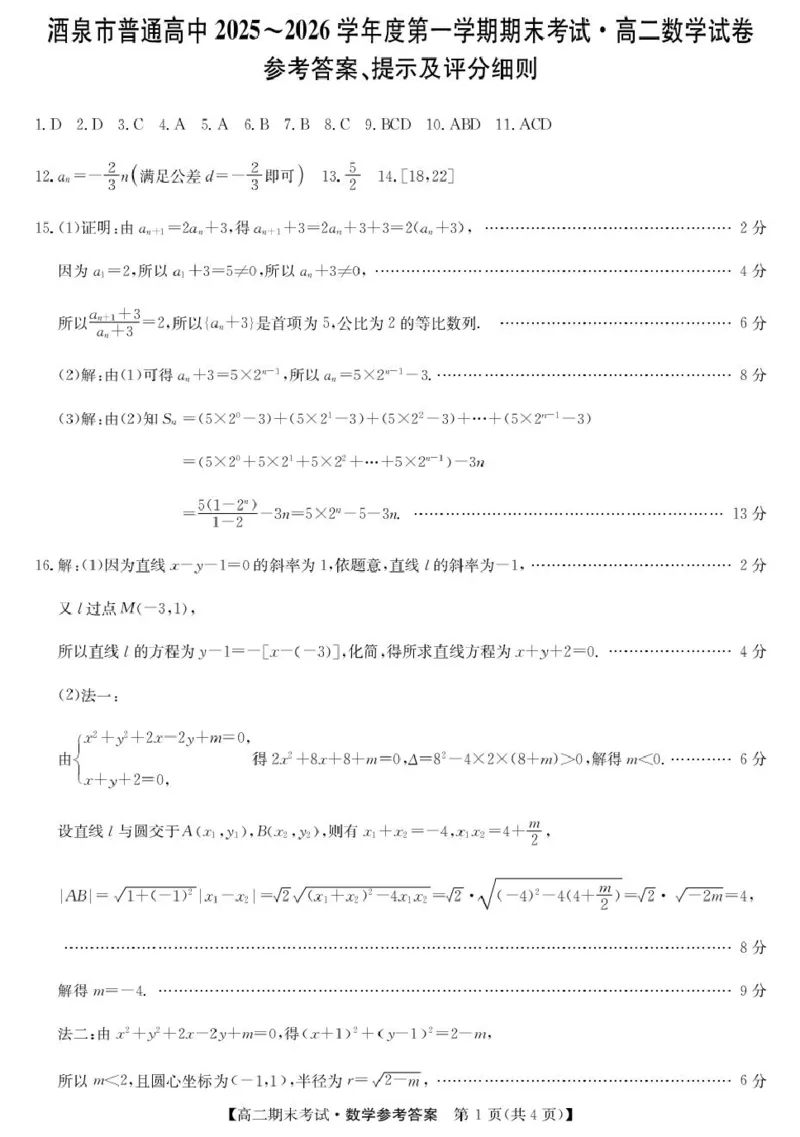 酒泉市普通高中 2025～2026 学年度第一学期期末考试·高二数学试卷
参考答案、提示及评分细则
1. D 2. D 3. C 4. A 5. A 6. B 7. B 8. C 9. BCD 10. ABD 11. ACD
12. aₙ=-2/3 n(满足公差 d=-2/3 即可) 13. 5/2 14. [18,22]
15. (1)证明:由 aₙ₊₁=2aₙ+3,得 aₙ₊₁+3=2aₙ+3+3=2(aₙ+3), …………………………………… 2 分
因为 a₁=2,所以 a₁+3=5≠0,所以 aₙ+3≠0, …………………………………… 4 分
所以 (aₙ₊₁+3)/(aₙ+3)=2,所以{aₙ+3}是首项为 5,公比为 2 的等比数列. …………………………………… 6 分
(2)解:由(1)可得 aₙ+3=5×2ⁿ⁻¹,所以 aₙ=5×2ⁿ⁻¹-3. …………………………………… 8 分
(3)解:由(2)知 Sₙ=(5×2⁰-3)+(5×2¹-3)+(5×2²-3)+…+(5×2ⁿ⁻¹-3)
=(5×2⁰+5×2¹+5×2²+…+5×2ⁿ⁻¹)-3n
=5(1-2ⁿ)/(1-2)-3n=5×2ⁿ-5-3n. …………………………………… 13 分
16. 解:(1)因为直线 x-y-1=0 的斜率为 1,依题意,直线 l 的斜率为-1, …………………………………… 2 分
又 l 过点 M(-3,1),
所以直线 l 的方程为 y-1=-[x-(-3)],化简,得所求直线方程为 x+y+2=0. …………………… 4 分
(2)法一:
由{x²+y²+2x-2y+m=0, x+y+2=0, 得 2x²+8x+8+m=0,Δ=8²-4×2×(8+m)>0,解得 m<0. ………… 6 分
设直线 l 与圆交于 A(x₁,y₁),B(x₂,y₂),则有 x₁+x₂=-4,x₁x₂=4+m/2,
|AB|=√(1+(-1)²)|x₁-x₂|=√2 √((x₁+x₂)²-4x₁x₂)=√2·√((-4)²-4(4+m/2))=√2·√(-2m)=4,
…………………………………… 8 分
解得 m=-4. …………………………………… 9 分
法二:由 x²+y²+2x-2y+m=0,得(x+1)²+(y-1)²=2-m,
所以 m<2,且圆心坐标为(-1,1),半径为 r=√(2-m), …………………………………… 6 分
【高二期末考试·数学参考答案 第 1 页(共 4 页)】